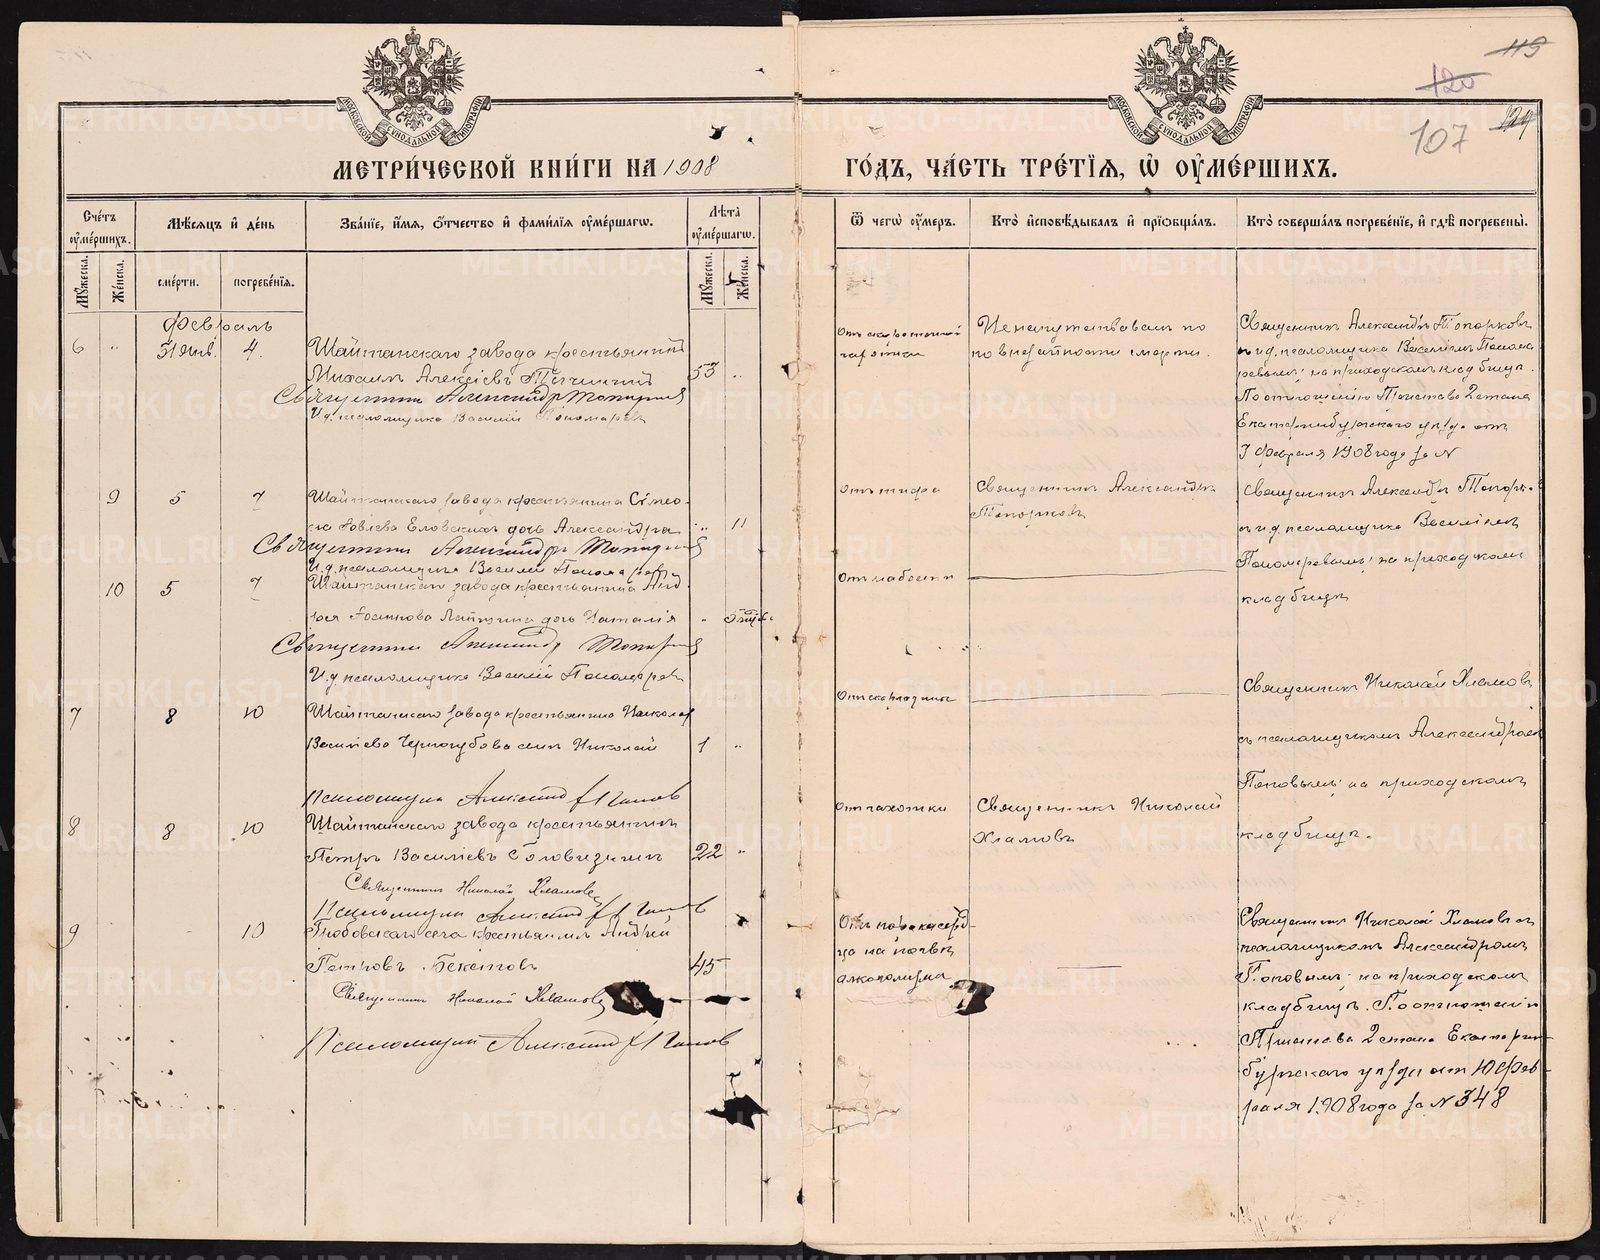 119
120
124
107
МЕТРИЧЕСКОЙ КНИГИ НА 1908 ГОДЪ, ЧАСТЬ ТРЕТІЯ, Ѡ ОУМЕРШИХЪ.
МОСКОВСКОЙ СУНОДАЛЬНОЙ ТИПОГРАФІИ
МОСКОВСКОЙ СУНОДАЛЬНОЙ ТИПОГРАФІИ
Счетъ оумершихъ.
Мѣсяцъ и день
Званіе, имя, отчество и фамилія оумершагѡ.
Лѣта оумершагѡ.
Ѿ чегѡ оумеръ.
Кто исповѣдывалъ и пріобщалъ.
Кто совершалъ погребеніе, и гдѣ погребены.
Мужеска.
Женска.
смерти.
погребенія.
Мужеска.
Женска.
Февраль
6 " 31 янв. 4.
Шайтанскаго завода крестьянинъ
Михаилъ Алексіевъ
53 "
Священникъ Александръ Топорковъ
И.д. псаломщика Василій Пономаревъ
Отъ скоротечной
чахотки
по внезапности смерти.
Священникъ Александръ Топорковъ
и и.д. псаломщика Василіемъ Понома
ревымъ; на приходскомъ кладбищѣ.
По отношенію Пристава 2 стана
Екатеринбургскаго уѣзда отъ
3 февраля 1908 года за N
9 5 7
Шайтанскаго завода крестьянина Сѵмео-
на Іовлева Еловскихъ дочь Александра
" 11
Священникъ Александръ Топорковъ
И.д. псаломщика Василій Пономаревъ
Отъ тифа
Священникъ Александръ
Топорковъ
Священникъ Александръ Топорк.
и и.д. псаломщика Василіемъ
Пономаревымъ; на приходскомъ
кладбищѣ
10 5 7
Шайтанскаго завода крестьянина Анд-
рея дочь Наталія
"
Священникъ Александръ Топорковъ
И.д. псаломщика Василій Пономаревъ
Отъ слабости
7 8 10
Шайтанскаго завода крестьянина Николая
Василіева Черногубова сынъ Николай
1 "
Псаломщикъ Александръ Поповъ
Отъ скарлатины
Священникъ Николай Хламовъ
съ псаломщикомъ Александромъ
Поповымъ; на приходскомъ
кладбищѣ.
8 8 10
Шайтанскаго завода крестьянинъ
Петръ Василіевъ Головизнинъ
22 "
Священникъ Николай Хламовъ
Псаломщикъ Александръ Поповъ
Отъ чахотки
Священникъ Николай
Хламовъ
9 10
крестьянинъ Андрей
Петровъ Бекетовъ
45
Священникъ Николай Хламовъ
Псаломщикъ Александръ Поповъ
Отъ порока серд-
ца на почвѣ
алкоголизма
Священникъ Николай Хламовъ съ
псаломщикомъ Александромъ
Поповымъ; на приходскомъ
кладбищѣ. По отношенію
Пристава 2 стана Екатерин-
бургскаго уѣзда отъ 10 фев-
раля 1908 года за N 348